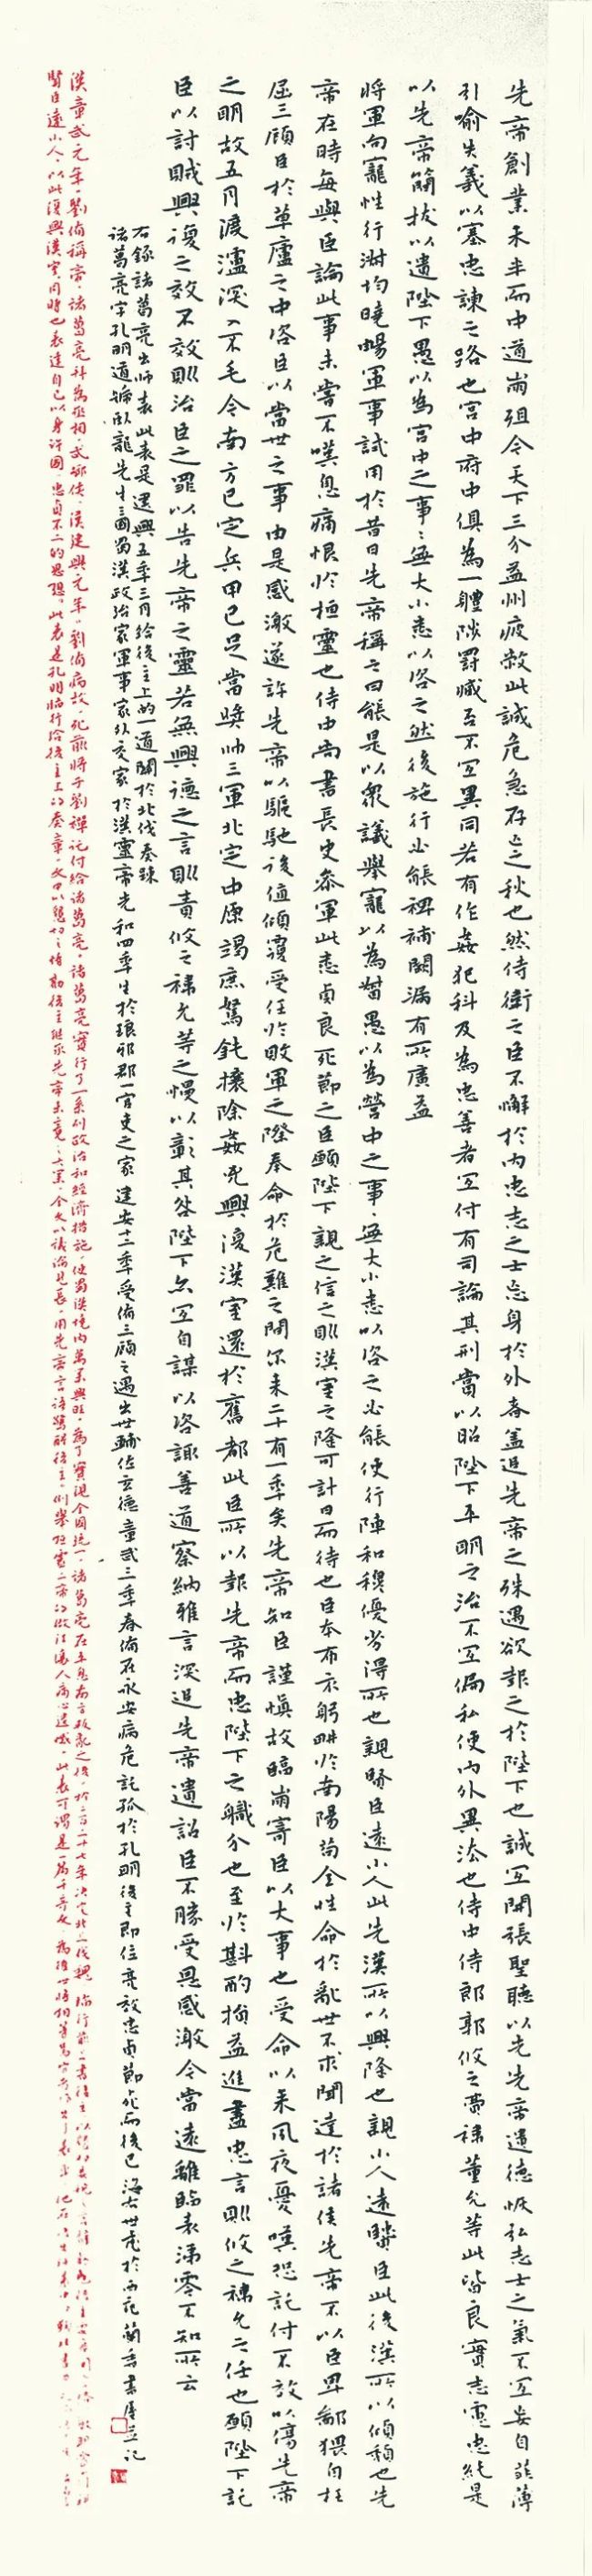 先帝創業未半而中道崩殂今天下三分益州疲敝此誠危急存亡之秋也然侍衛之臣不懈於內忠志之士忘身於外者蓋追先帝之殊遇欲報之於陛下也誠宜開張聖聽以光先帝遺德恢弘志士之氣不宜妄自菲薄
引喻失義以塞忠諫之路也宮中府中俱為一體陟罰臧否不宜異同若有作姦犯科及為忠善者宜付有司論其刑賞以昭陛下平明之治不宜偏私使內外異法也侍中侍郎郭攸之費禕董允等此皆良實志慮忠純是
以先帝簡拔以遺陛下愚以為宮中之事〻無大小悉以咨之然後施行必能裨補闕漏有所廣益
將軍向寵性行淑均曉暢軍事試用於昔日先帝稱之曰能是以眾議舉寵以為督愚以為營中之事〻無大小悉以咨之必能使行陣和穆優劣得所也親賢臣遠小人此先漢所以興隆也親小人遠賢臣此後漢所以傾頹也先
帝在時每與臣論此事未嘗不嘆息痛恨於桓靈也侍中尚書長史參軍此悉貞良死節之臣願陛下親之信之則漢室之隆可計日而待也臣本布衣躬耕於南陽苟全性命於亂世不求聞達於諸侯先帝不以臣卑鄙猥自枉
屈三顧臣於草廬之中咨臣以當世之事由是感激遂許先帝以驅馳後值傾覆受任於敗軍之際奉命於危難之間尔來二十有一年矣先帝知臣謹慎故臨崩寄臣以大事也受命以來夙夜憂嘆恐託付不效以傷先帝
之明故五月渡瀘深入不毛今南方已定兵甲已足當獎帥三軍北定中原竭庶駑鈍攘除姦兇興復漢室還於舊都此臣所以報先帝而忠陛下之職分也至於斟酌損益進盡忠言則攸之禕允之任也願陛下託
臣以討賊興復之效不效則治臣之罪以告先帝之靈若無興德之言則責攸之禕允等之慢以彰其咎陛下亦宜自謀以咨諏善道察納雅言深追先帝遺詔臣不勝受恩感激今當遠離臨表涕零不知所云
右錄諸葛亮出師表此表是建興五年三月給後主上的一道關於北伐奏疏
諸葛亮字孔明道號臥龍先生三國蜀漢政治家軍事家外交家於漢靈帝光和四年生於琅邪郡一官吏之家建安十二年受備三顧之遇出世輔佐玄德章武三年春備在永安病危託孤於孔明後主即位亮效忠貞節死而後已海右世虎於西苑蘭香書屋並記
漢章武元年劉備稱帝諸葛亮拜為丞相武鄉侯漢建興元年劉備病故死前將子劉禪託付給諸葛亮諸葛亮實行了一系列政治和經濟措施使蜀漢境內萬業興旺為了實現全國統一諸葛亮在平息南方叛亂之後於二百二十七年決定北上伐魏臨行前上書後主
賢臣遠小人以此復興漢室同時也表達自己以身許國忠貞不二的思想此表是孔明臨行給後主上的奏章文中以懇切之情勸後主繼承先帝未竟之大業全文以議論見長用先帝言語警醒後主例舉桓靈二帝的做法讓人痛心遺憾此表可謂是一篇千奇文